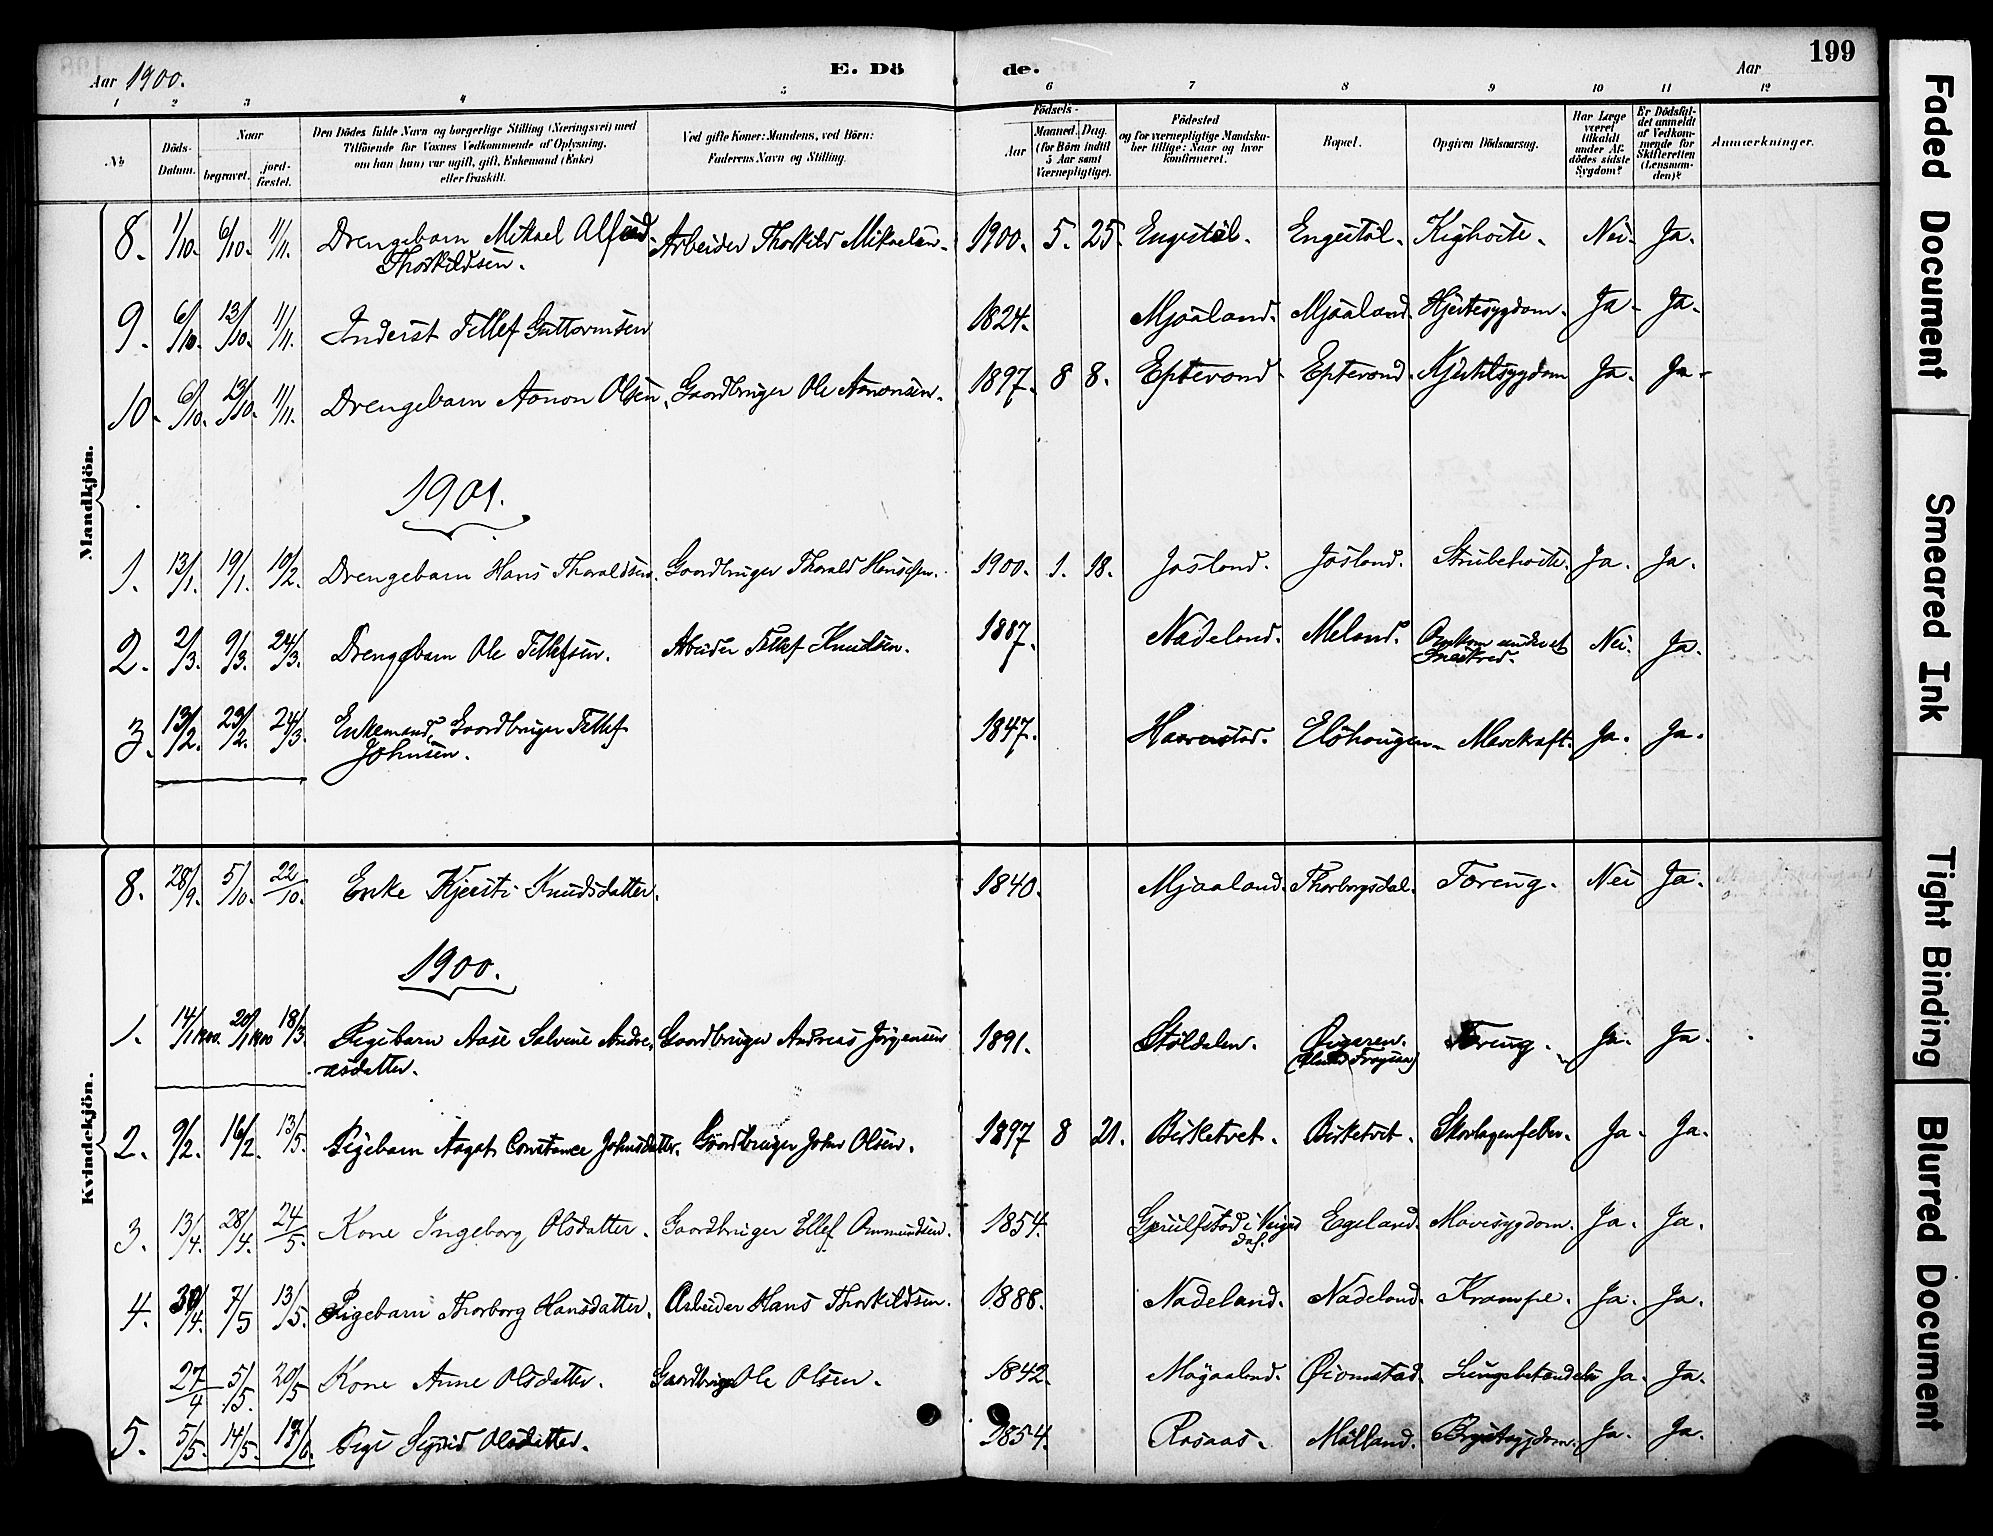 Aar 1900. E. Dö de. Aar 199
1 2 3 4 5 6 7 8 9 10 11 12
No
Döds-Datum.
Naar
begravet. jord-fæstet.
Den Dödes fulde Navn og borgerlige Stilling (Næringsvei) med
Tilföiende for Voxnes Vedkommende af Oplysning,
om han (hun) var ugift, gift, Enkemand (Enke)
eller fraskilt.
Ved gifte Koner: Mandens, ved Börn:
Faderens Navn og Stilling.
Födsels-
Aar
Maaned. Dag.
(for Börn indtil
5 Aar samt
Værnepligtige).
Födested
og for værnepligtige Mandska-
ber tillige: Naar og hvor
konfirmeret.
Bopæl.
Opgiven Dödsaarsag.
Har Læge
været
tilkaldt
under Af-
dödes sidste
Sygdom?
Er Dödsfal-
det anmeldt
af Vedkom-
mende for
Skifteretten
(Lensman-
den)?
Anmærkninger.
Mandkjön.
8. 1/10. 6/10. 11/11. Drengebarn Mikael Alfred Arbeider Thorkild Mikaelsen. 1900. 5. 25. Engestöl. Engestöl. Kighoste. Nei. Ja.
Thorkildsen.
9. 6/10. 13/10. 11/11. Inderst Tellef Guttormsen 1824. Mjaaland. Mjaaland. Hjertesygdom. Ja. Ja.
10. 6/10. 13/10. 11/11. Drengebarn Aanon Olsen. Gaardbruger Ole Aanonsen. 1897. 8 8. Eptevand. Eptevand. Ja. Ja.
1901.
1. 13/1. 19/1. 10/2. Drengebarn Hans Thoraldsen. Gaardbruger Thorald Hansen. 1900. 1. 18. Josland. Josland. Strubehoste. Ja. Ja.
2. 2/3. 9/3. 24/3. Drengebarn Ole Tellefsen. Arbeider Tellef Knudsen. 1887. Nadeland. Meland. Omkom under et
Sneskred. Nei. Ja.
3. 13/2. 23/2. 24/3. Enkemand, Gaardbruger Tellef
Johnsen. 1847. Haverstad. Elshougen. Mavekræft. Ja. Ja.
Kvindekjön.
8. 28/9. 5/10. 22/10. Enke Kjersti Knudsdatter. 1840. Mjaaland. Thorborgsdal. Tæring. Nei Ja.
1900.
1. 14/1 1900. 20/1 1900 18/3. Pigebarn Aase Salvine Andre- Gaardbruger Andreas Jörgensen 1891. Stöldalen. Tæring. Ja. Ja.
asdatter.
2. 9/2. 16/2. 13/5. Pigebarn Aagot Constance Johnsdatter. Gaardbruger John Olsen. 1897 8 21. Birketvet. Birketvet. Skarlagensfeber. Ja. Ja.
3. 13/4. 28/4. 24/5. Kone Ingeborg Olsdatter. Gaardbruger Ellef Ommundsen. 1854. Egeland. Mavesygdom. Ja. Ja.
4. 30/4. 7/5 13/5. Pigebarn Thorborg Hansdatter. Arbeider Hans Thorkildsen. 1888. Nadeland. Nadeland. Krampe. Ja. Ja.
27/4 5/5. 20/5 Kone Anne Olsdatter. Gaardbruger Ole Olsen. 1842. Öiomstad. Lungebetændelse Ja. Ja.
5. 5/5. 14/5. 17/6. Pige Sigrid Olsdatter. 1854. Rosaas. Mölland. Brystsygdom. Ja. Ja.
Faded Document
Smeared Ink
Tight Binding
Blurred Document